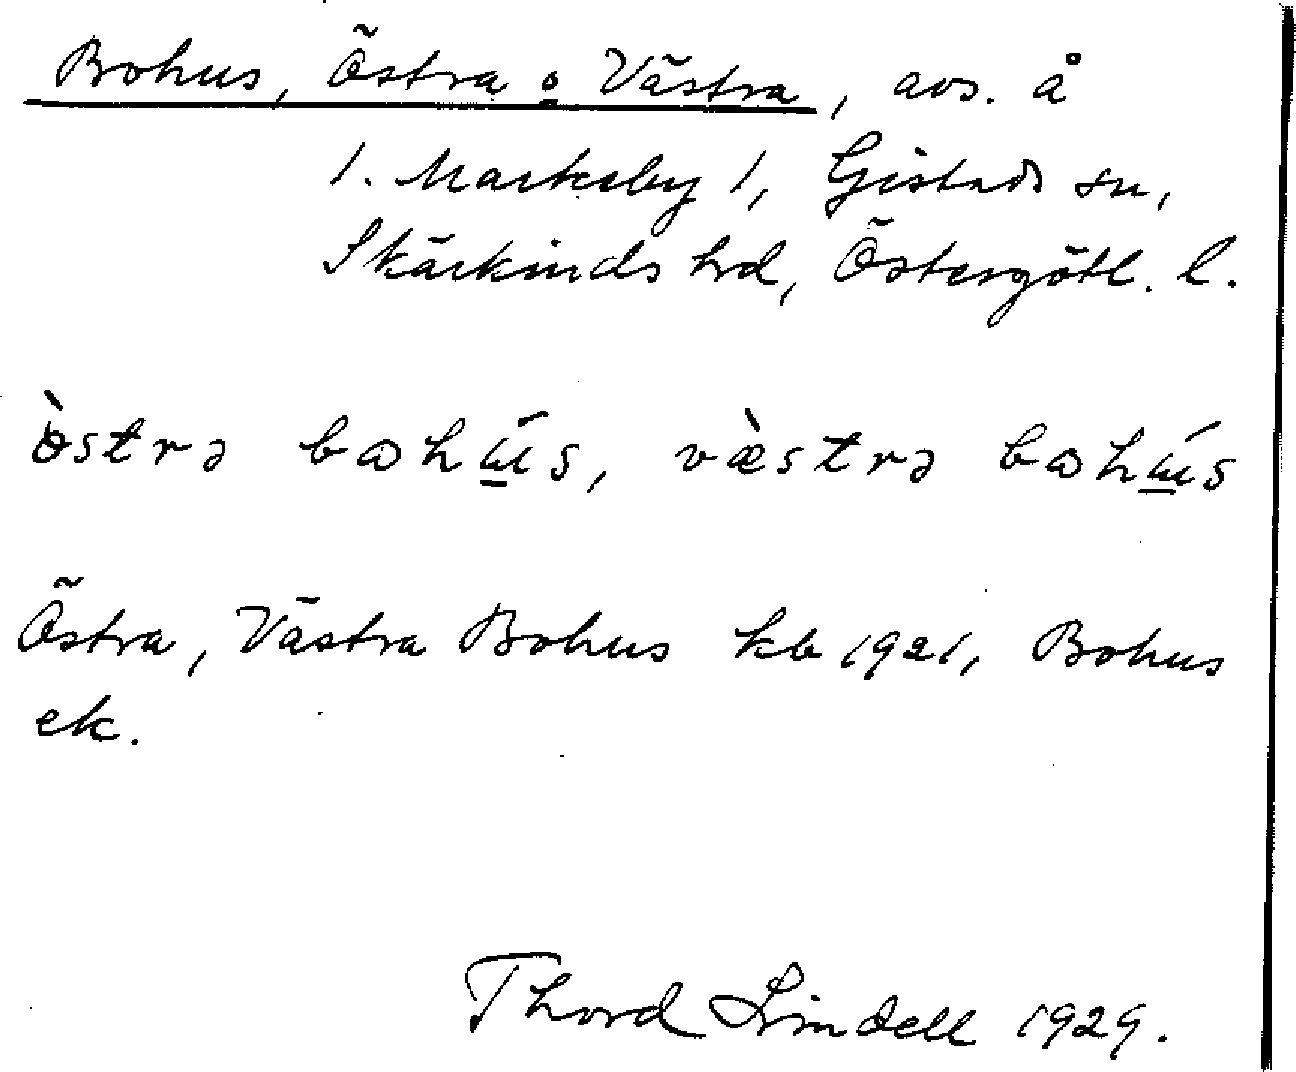 Bohus, Östra o Västra, avs. å
1. Markeby 1, Gistads sn,
Skärkinds hrd, Östergötl. l.
östrə bωhɯ́s, væ̀strə bωhɯ́s
Östra, Västra Bohus kb 1921, Bohus
ek.
Thord Lindell 1929.